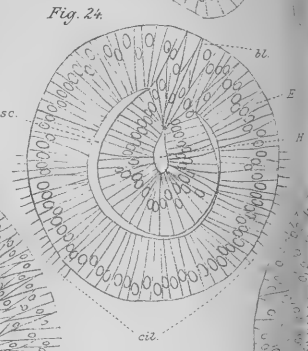 Fig. 24.
bl.
E
sc.
H
cil.